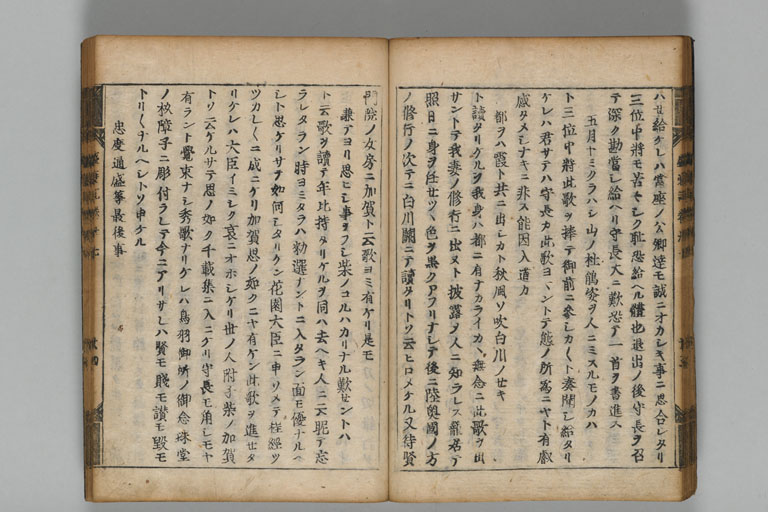 ハせ給ケレハ當座ノ公卿達モ誠ニオカシキ事ニ思合レタリ
三位中將モ苦キシク恥思給ヘル體也退出ノ後守長ヲ召
テ深ク勘當シ給ヘリ守長大ニ歎恐テ一首ヲ書進ス
五月十ミクラハシ山ノ杜鵑姿ヲ人ニミスルモノカハ
ト三位中將此歌ヲ捧テ御前ニ參シカ〱ト奏聞シ給タリ
ケレハ君サテハ守長カ此歌ヨマントテ態ノ所為ニヤト有叡
感タメシナキニ非ス能因入道カ
都ヲハ霞ト共ニ出シカト秋風ソ吹白川ノせキ
ト讀タリケルヲ我身ハ都ニ有ナカライカヽ無念ニ此歌ヲ出
サントテ我妻ノ修行ニ出ヌト披露ヲ人ニ知ラレス籠居テ
照日ニ身ヲ任せツヽ色ヲ黒クアフリナシテ後ニ陸奥國ノ方
ノ修行ノ次テニ白川關ニテ讀タリトソ云ヒロメケル又待賢
門院ノ女房ニ加賀ト云歌ヨミ有ケリ是モ
兼テヨリ思ヒシ事ヲフシ柴ノコルハカリナル歎せントハ
ト云歌ヲ讀テ年比持タリケルヲ同ハ去ヘキ人ニ云眤テ忘
ラレタラン時ヨミタラハ勅選ナントニ入タラン面モ優ナルヘ
シト思ケリサテ如何シタリケン花園大臣ニ申ソメテ程經ツ
ツカレ〱ニ成ニケリ加賀思ノ如クニヤ有ケン此歌ヲ進せタ
リケレハ大臣イミシク哀ニオホシケリ世ノ人附子柴ノ加賀
トソ云ケルサテ思ノ如ク千載集ニ入ニケリ守長モ角シモヤ
有ラント覺束ナシ秀歌ナリケレハ鳥羽御所ノ御念珠堂
ノ杉障子ニ彫付ラレテ今ニアリサレハ賢モ賤モ讃モ毀モ
トリ〱ナルヘシトソ申ケル
忠度通盛等最後事